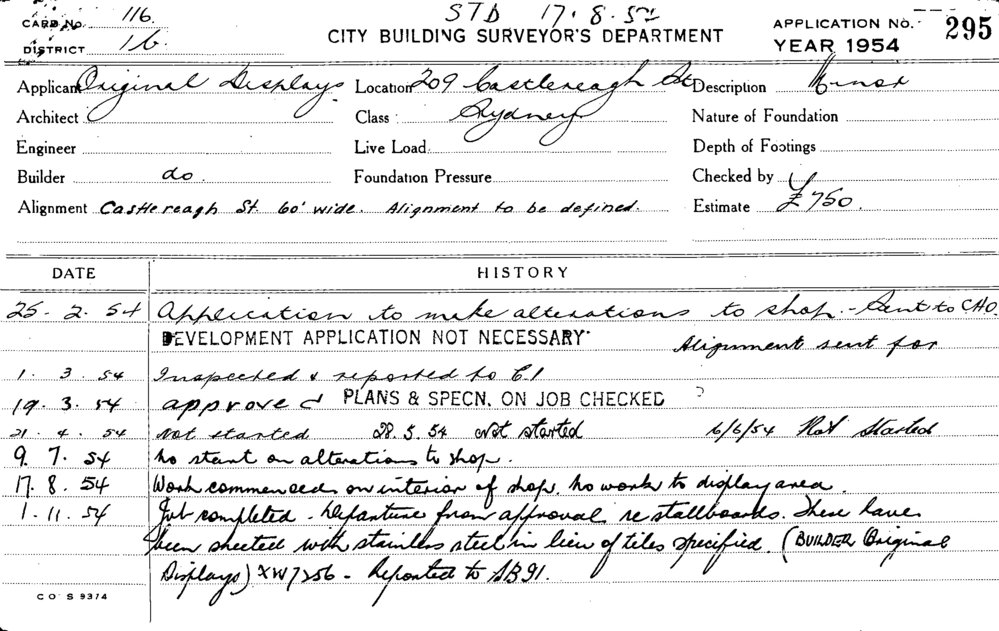 CARD No. 116. STD 17.8.54 APPLICATION No. 295
DISTRICT 16. CITY BUILDING SURVEYOR'S DEPARTMENT YEAR 1954
Applicant Original Displays Location 209 Castlereagh St Description Minor
Architect Class Sydney Nature of Foundation
Engineer Live Load Depth of Footings
Builder do. Foundation Pressure Checked by
Alignment Castlereagh St. 60' wide. Alignment to be defined. Estimate £750.
DATE HISTORY
25-2.54 Application to make alterations to shop.- Sent to CHO.
DEVELOPMENT APPLICATION NOT NECESSARY. Alignment sent for
1.3.54 Inspected & reported to C.I
19.3.54 approved PLANS & SPECN. ON JOB CHECKED ?
21.4.54 Not started 28.5.54 Not started 6/6/54 Not Started
9.7.54 No start on alterations to shop.
17.8.54 Work commenced on interior of shop. No work to display area.
1.11.54 Job completed. Departure from approval re stallboards. These have
been sheeted with stainless steel in lieu of tiles specified. (BUILDER Original
Displays) XW7256 - Reported to
CO S 9374